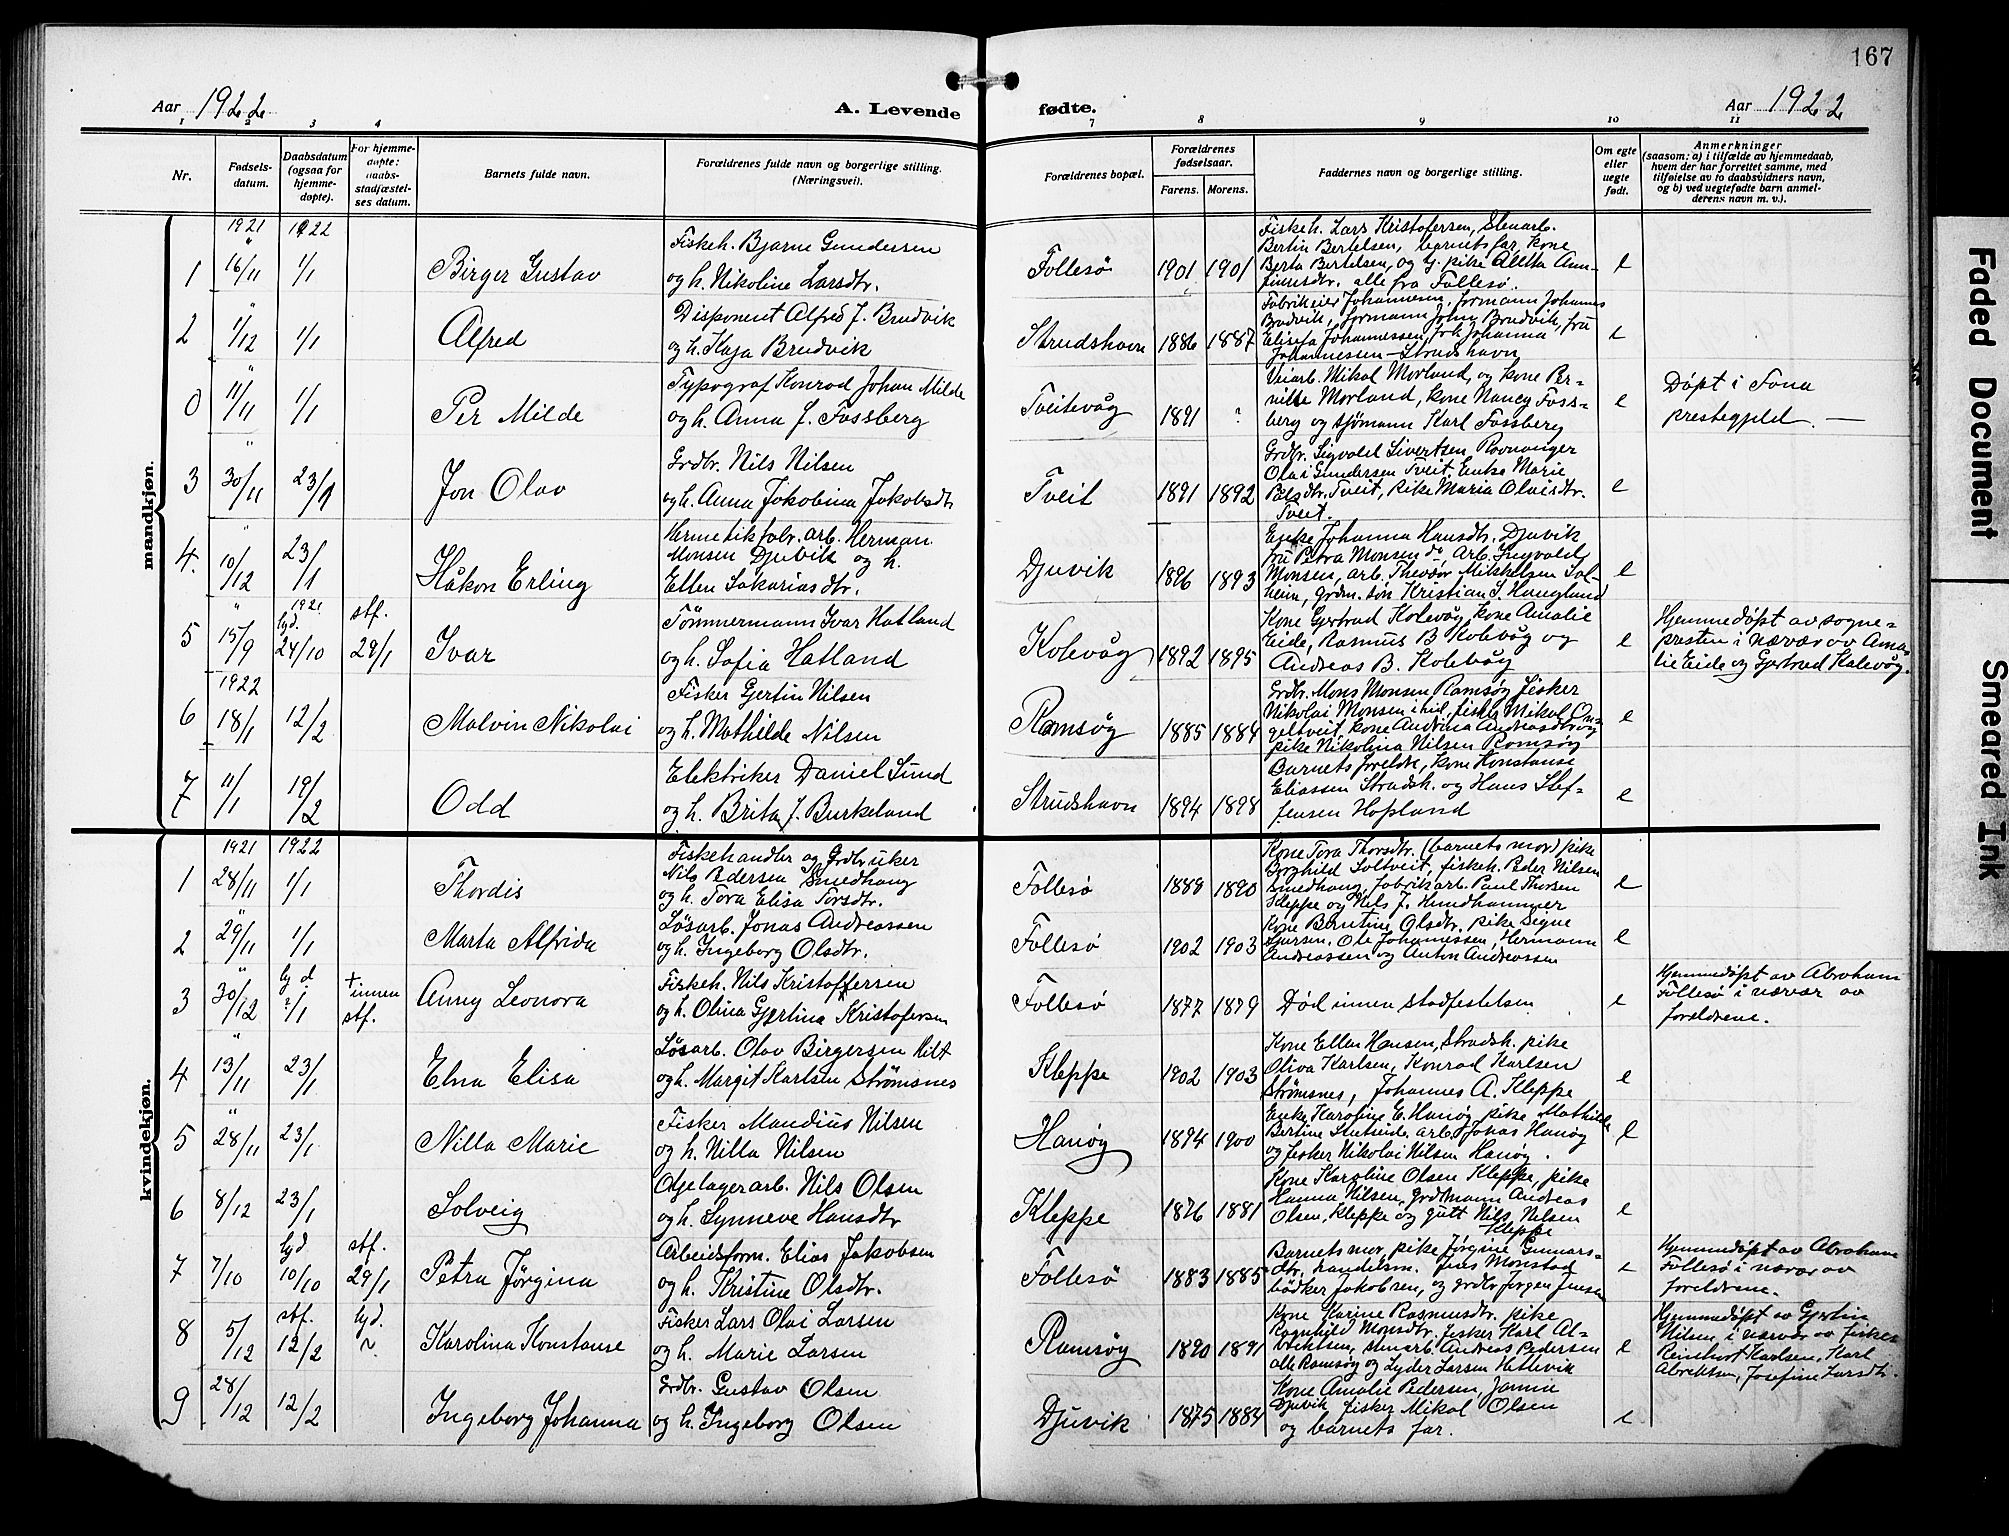 167
Aar 1922
A. Levende fødte.
Aar 1922
1 2 3 4 7 8 9 10 11
Nr.
Fødsels-
datum.
Daabsdatum
(ogsaa for
hjemme-
døpte).
For hjemme-
døpte:
daabs-
stadfæstel-
ses datum.
Barnets fulde navn.
Forældrenes fulde navn og borgerlige stilling.
(Næringsvei).
Forældrenes bopæl.
Forældrenes
fødselsaar.
Farens. Morens.
Faddernes navn og borgerlige stilling.
Om egte
eller
uegte
født.
Anmerkninger
(saasom: a) i tilfælde av hjemmedaab,
hvem der har forrettet samme, med
tilføielse av to daabsvidners navn,
og b) ved uegtefødte barn anmel-
derens navn m. v.).
mandkjøn.
1921 1922
1 16/11 1/1 Birger Gustav
Fiskeh. Bjarne Gundersen
og h. Nikoline Larsdtr.
Follesö 1901 1901
Fiskeh. Lars Kristofersen, Stenarb.
Bertin Bertelsen, barnets far, kone
Berta Bertelsen, og pike
alle fra Follesö.
e
2 1/12 1/1 Alfred
Disponent Alfred J. Brudvik
og h. Kaja Brudvik
Strudshavn 1886 1887
Fabrikeier Johannesen, formann Johannes
Brudvik, formann John Brudvik, fru
Elisefa Johannessen, frk. Johanna
Johannessen - Strudshavn
e
0 11/11 1/1 Per Milde
Typograf Konrad Johan Milde
og h. Anna J. Fossberg
Tveitevåg 1891 ?
Veiarb. Mikal Morland, og kone Per-
nille Morland, kone Nancy Foss-
berg og sjömann Karl Fossberg
e
Döpt i Fana
prestegjeld. —
3 30/11 23/1 Jon Olav
Grdbr. Nils Nilsen
og h. Anna Jakobina Jakobsdtr
Tveit 1891 1892
Grdbr. Sigvald Sivertsen Ravnanger
Olai Gundersen Tveit, Enke Marie
Tveit, pike Maria Olaisdtr.
Tveit.
e
4. 10/12 23/1 Håkon Erling
Hermetikfabr. arb. Herman
Monsen Djuvik og h.
Ellen Sakariasdtr.
Djuvik 1896 1893
Enke Johanna Hansdtr. Djuvik
fru Petra Monsen do Arb. Ingvald
Monsen, arb. Thevdor Mikkelsen Sol-
heim, grdm. sön Kristian J. Haugland
e
5 15/9 1921 hjd. 24/10 stf. 29/1 Ivar
Tömmermann Ivar Hatland
og h. Sofia Hatland
Kolevåg 1892 1895
Kone Gjertrud Kolevåg, kone Amalie
Eide, Rasmus B. Kolevåg og
Andreas B. Kolevåg
e
Hjemmedöpt av sogne-
presten i nærvær av Ama-
lie Eide og Gjertrud Kolevåg.
1922
6 18/1 12/2 Malvin Nikolai
Fisker Gjertin Nilsen
og h. Mathilde Nilsen
Ramsøy 1885 1884
Grdbr. Mons Monsen Ramsøy fisker
Nikolai Monsen ibid., fisker Mikal On-
geltveit, kone Andrina Andreasdtr. og
pike Nikolina Nilsen Ramsøy
e
7 11/1 19/2 Odd
Elektriker Daniel Sund
og h. Brita J. Burkeland
Strudshavn 1894 1898
Barnets foreldre, kone Konstanse
Eliassen Strudsh. og Hans Stef-
fensen Hopland
e
kvindekjøn.
1921 1922
1 28/11 1/1 Thordis
Fiskehandler og Grdbruker
Nils Pedersen Smedhaug
og h. Tora Elisa Torsdtr.
Follesö 1888 1890
Kone Tora Thorsdtr. (barnets mor) pike
Borghild Soltveit, fiskeh. Peder Nilsen
Smedhaug, fabrikarb. Paul Thorsen
Kleppe og Nils J. Hundhammer
e
2 29/11 1/1 Marta Alfrida
Løsarb. Jonas Andreassen
og h. Ingeborg Olsdtr.
Follesö 1902 1903
Kone Berntine Olsdtr. pike Signe
Sjursen, Ole Johannessen, Hermann
Andreassen og Anton Andreassen
e
3 30/12 hjd ?/1 + innen stf. Anny Leonora
Fiskeh. Nils Kristoffersen
og h. Olina Gjertina Kristofersen
Follesö 1877 1879
Död innen stadfestelsen
e
Hjemmedöpt av Abraham
Follesö i nærvær av
foreldrene.
4 13/11 23/1 Elna Elisa
Løsarb. Olav Birgersen Hilt
og h. Margit Karlsen Strömsnes
Kleppe 1902 1903
Kone Ellen Hansen, Strudsh. pike
Oliva Karlsen, Konrad Karlsen
Strömsnes, Johannes A. Kleppe
e
5 28/11 23/1 Nilla Marie
Fisker Mandius Nilsen
og h. Nilla Nilsen
Hanøy 1894 1900
Enke Karoline E. Hanøy pike Mathilde
Bertine arb. Jonas Hanøy
og fisker Nikolai Nilsen Hanøy.
e
6 8/12 23/1 Solveig
Oljelagerarb. Nils Olsen
og h. Synneve Hansdtr
Kleppe 1876 1881
Kone Karoline Olsen Kleppe, pike
Hanna Nilsen, grdmann Andreas
Olsen, Kleppe og gutt Nils Nilsen
Kleppe
e
7 7/10 hjd 10/10 stf. 29/1 Petra Jörgina
Arbeidsform. Elias Jakobsen
og h. Kristine Olsdtr.
Follesö 1883 1885
Barnets mor, pike Jörgine Gunnars-
dtr, handelsm. Jens Monstad
bödker Jakobsen, og grdbr Jörgen Jensen
e
Hjemmedöpt av Abraham
Follesö i nærvær av
foreldrene.
8 5/12 stf. 12/2 hjd. ? Karolina Konstanse
Fisker Lars Olai Larsen
og h. Marie Larsen
Ramsøy 1890 1891
Kone Karine Rasmusdtr. pike
Ragnhild Monsdtr. fisker Karl Al-
brektsen, stenarb. Andreas Pedersen
alle Ramsøy og Lyder Larsen Hetlevik
e
Hjemmedöpt av Gjertin
Nilsen i nærvær av fisker
Reinhart Karlsen, Karl
Albrektsen, Josefine Larsdtr.
9 28/12 12/2 Ingeborg Johanna
Grdbr. Gustav Olsen
og h. Ingeborg Olsen
Djuvik 1875 1884
Kone Amalie Pedersen, Jannie
Djuvik fisker Mikal Olsen
og barnets far.
e
Faded Document
Smeared Ink